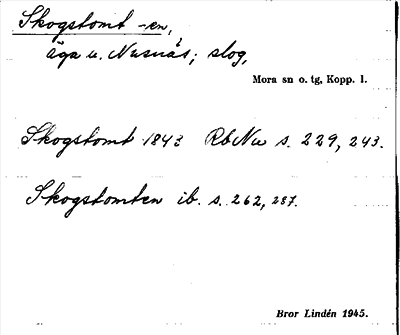 Skogstomt -en,
äga u. Nusnäs; slog,
Mora sn o. tg, Kopp. l.
Skogstomt 1843 RbNu s. 229, 243.
Skogstomten ib. s. 262, 287.
Bror Lindén 1945.